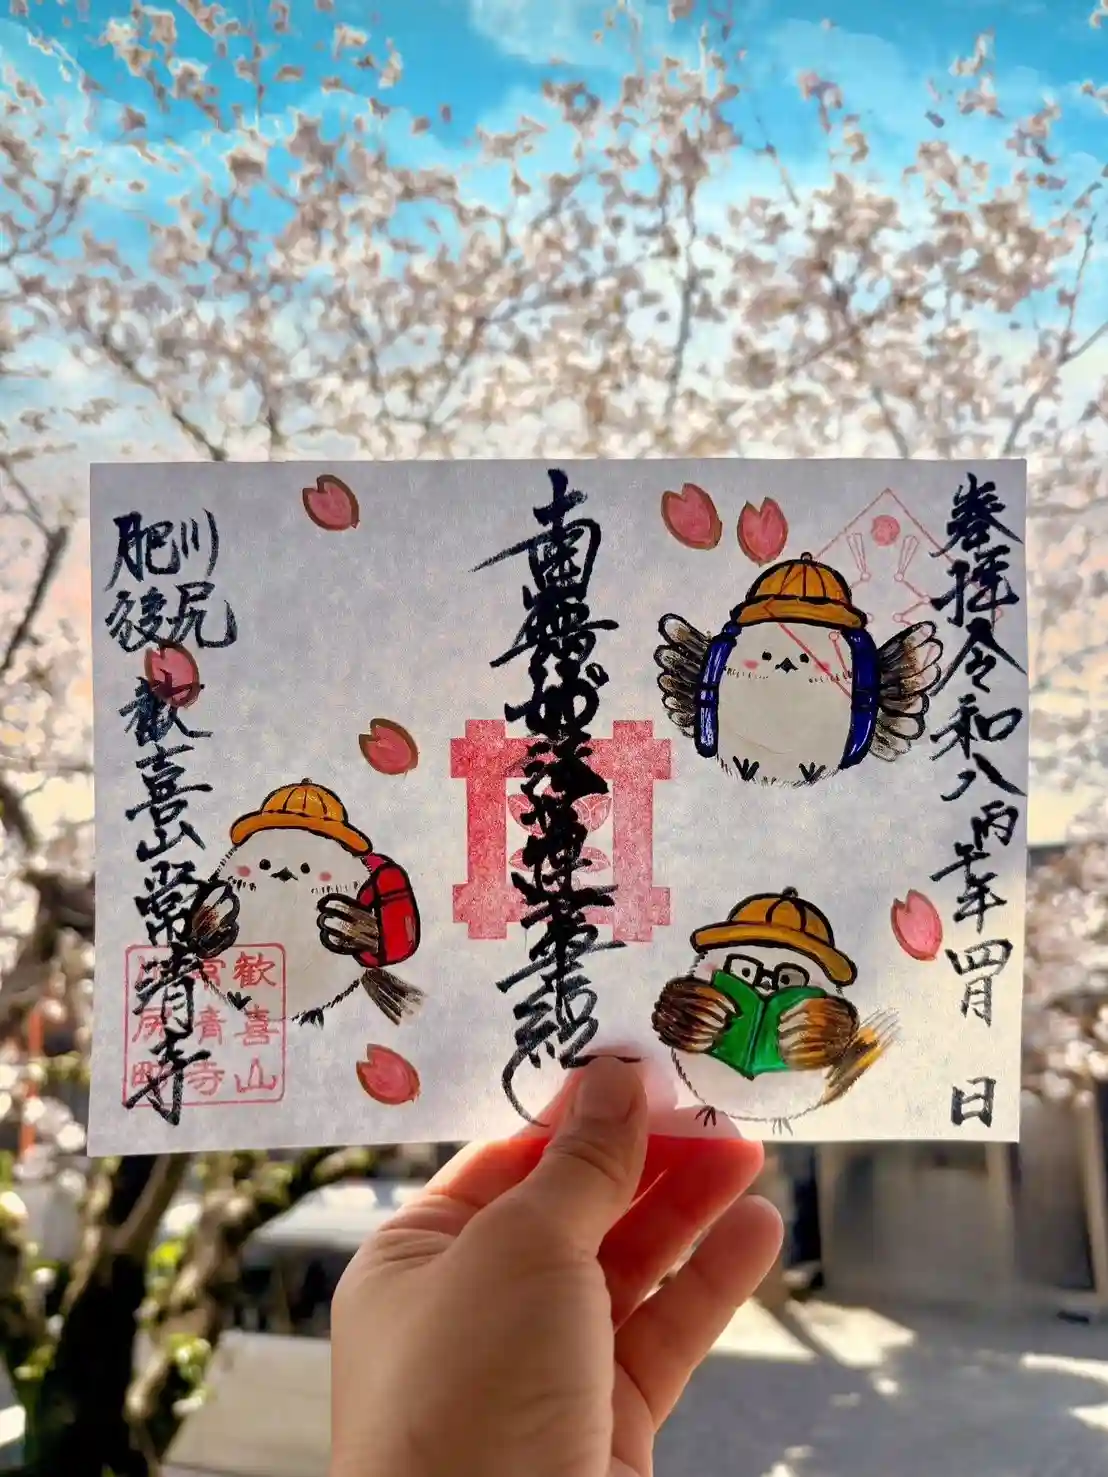 奉拝 令和八丙午年四月 日
南無妙法蓮華経
肥後
川尻
歓喜山常清寺
歓喜山
常清寺
川尻町